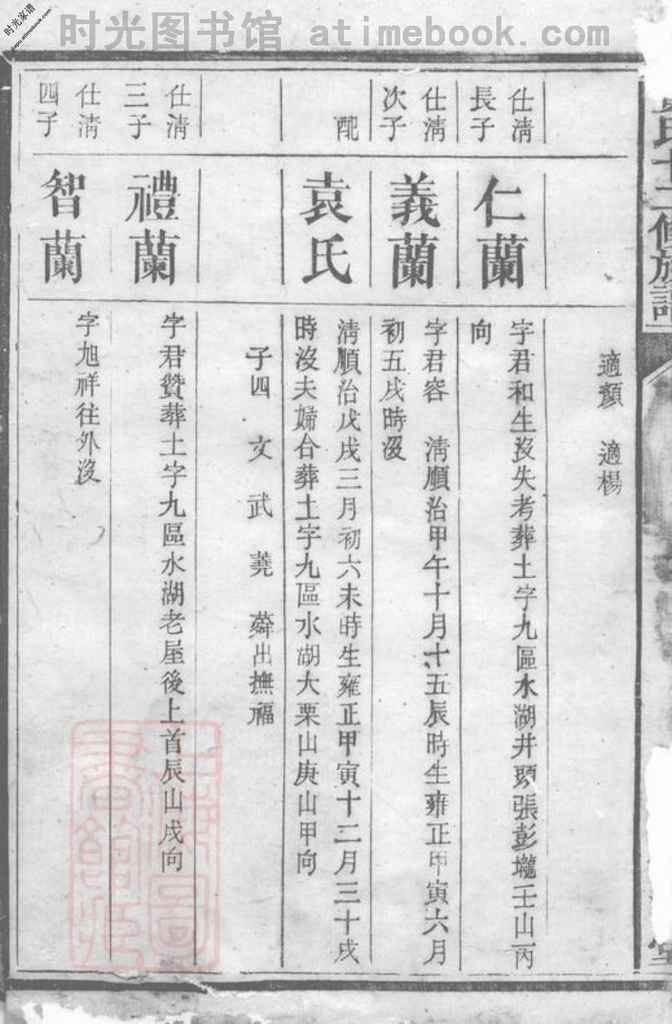 时光图书馆 atimebook.com
时光家谱
www.atimebook.com
修族譜
適顏 適楊
仕清長子
仁蘭
字君和生沒失考葬土字九區水湖井頭張彭壠壬山丙
向
仕清次子
義蘭
字君容 清順治甲午十月十五辰時生雍正甲寅六月
初五戌時沒
配
袁氏
清順治戊戌三月初六未時生雍正甲寅十二月三十戌
時沒夫婦合葬土字九區水湖大栗山庚山甲向
子四 文 武 堯 舜出撫福
仕清三子
禮蘭
字君贊葬土字九區水湖老屋後上首辰山戌向
仕清四子
智蘭
字旭祥往外沒
堂